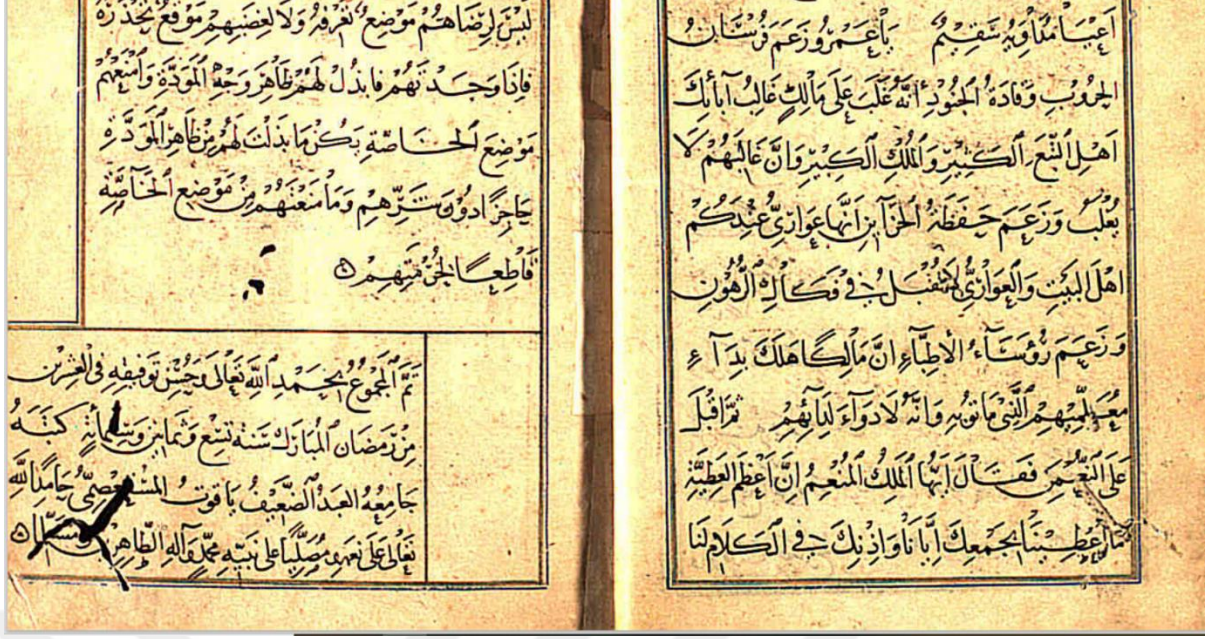 اعيا مداويه سقيم يا عمرو زعم فرسان
الحروب وقادة الجنود أنه غلب على مالك غالب آبائك
اهل التبع الكبير والملك الكبير وان غالبهم لا
يغلب وزعم حفظة الخزاين انها عواري عندكم
اهل البيت والعواري لا تقبل في فكاك الرهون
وزعم رؤساء الأطباء ان مالكا هلك بداء
معلميهم الذي ماتوا به وانه لا دواء لدائهم ثم اقبل
على النعمن فقال ايها الملك المنعم ان اعظم العطية
ما اعطيتنا بجمعك ايانا واذنك في الكلام لنا
ليس لرضاهم موضع تعرفه ولا لغضبهم موقع تحذره
فاذا وجدتهم فابذل لهم ظاهر وجه المودة وامنعهم
موضع الخاصة يكن ما بذلت لهم من ظاهر المودة
حاجزا دون شرهم وما منعتهم من موضع الخاصة
قاطعا لحرمتهم
تم المجموع بحمد الله تعالى وحسن توفيقه في العشرين
من رمضان المبارك سنة تسع وثمانين وستمائة كتبه
جامعه العبد الضعيف ياقوت المستعصمي حامدا لله
تعالى على نعمه ومصليا على نبيه محمد وآله الطاهرين ومسلما